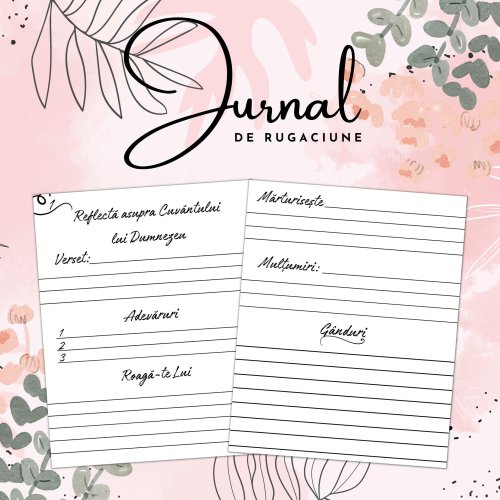 Jurnal
DE RUGACIUNE
1
Reflectă asupra Cuvântului
lui Dumnezeu
Verset:
Adevăruri
1
2
3
Roagă-te Lui
Mărturisește
Mulțumiri:
Gânduri